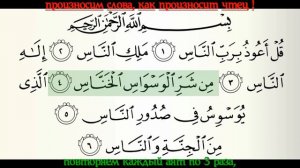 произносим слова, как произносит чтец !
بِسْمِ ٱللَّهِ ٱلرَّحْمَٰنِ ٱلرَّحِيمِ
قُلْ أَعُوذُ بِرَبِّ النَّاسِ ١ مَلِكِ النَّاسِ ٢ إِلَٰهِ
النَّاسِ ٣ مِن شَرِّ الْوَسْوَاسِ الْخَنَّاسِ ٤ الَّذِى
يُوَسْوِسُ فِى صُدُورِ النَّاسِ ٥
مِنَ الْجِنَّةِ وَالنَّاسِ ٦
повторяем каждый аят по 3 раза,